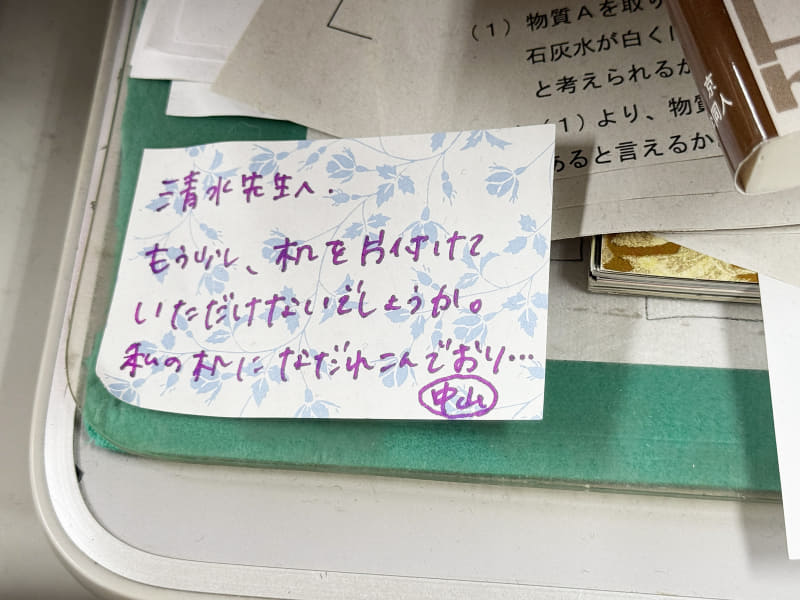 清水先生へ.
もう少し、机を片付けて
いただけないでしょうか。
私の机になだれこんでおり…
中山
(1)物質Aを取り
石灰水が白く
と考えられるか
(1)より、物質
あると言えるか
京
同人